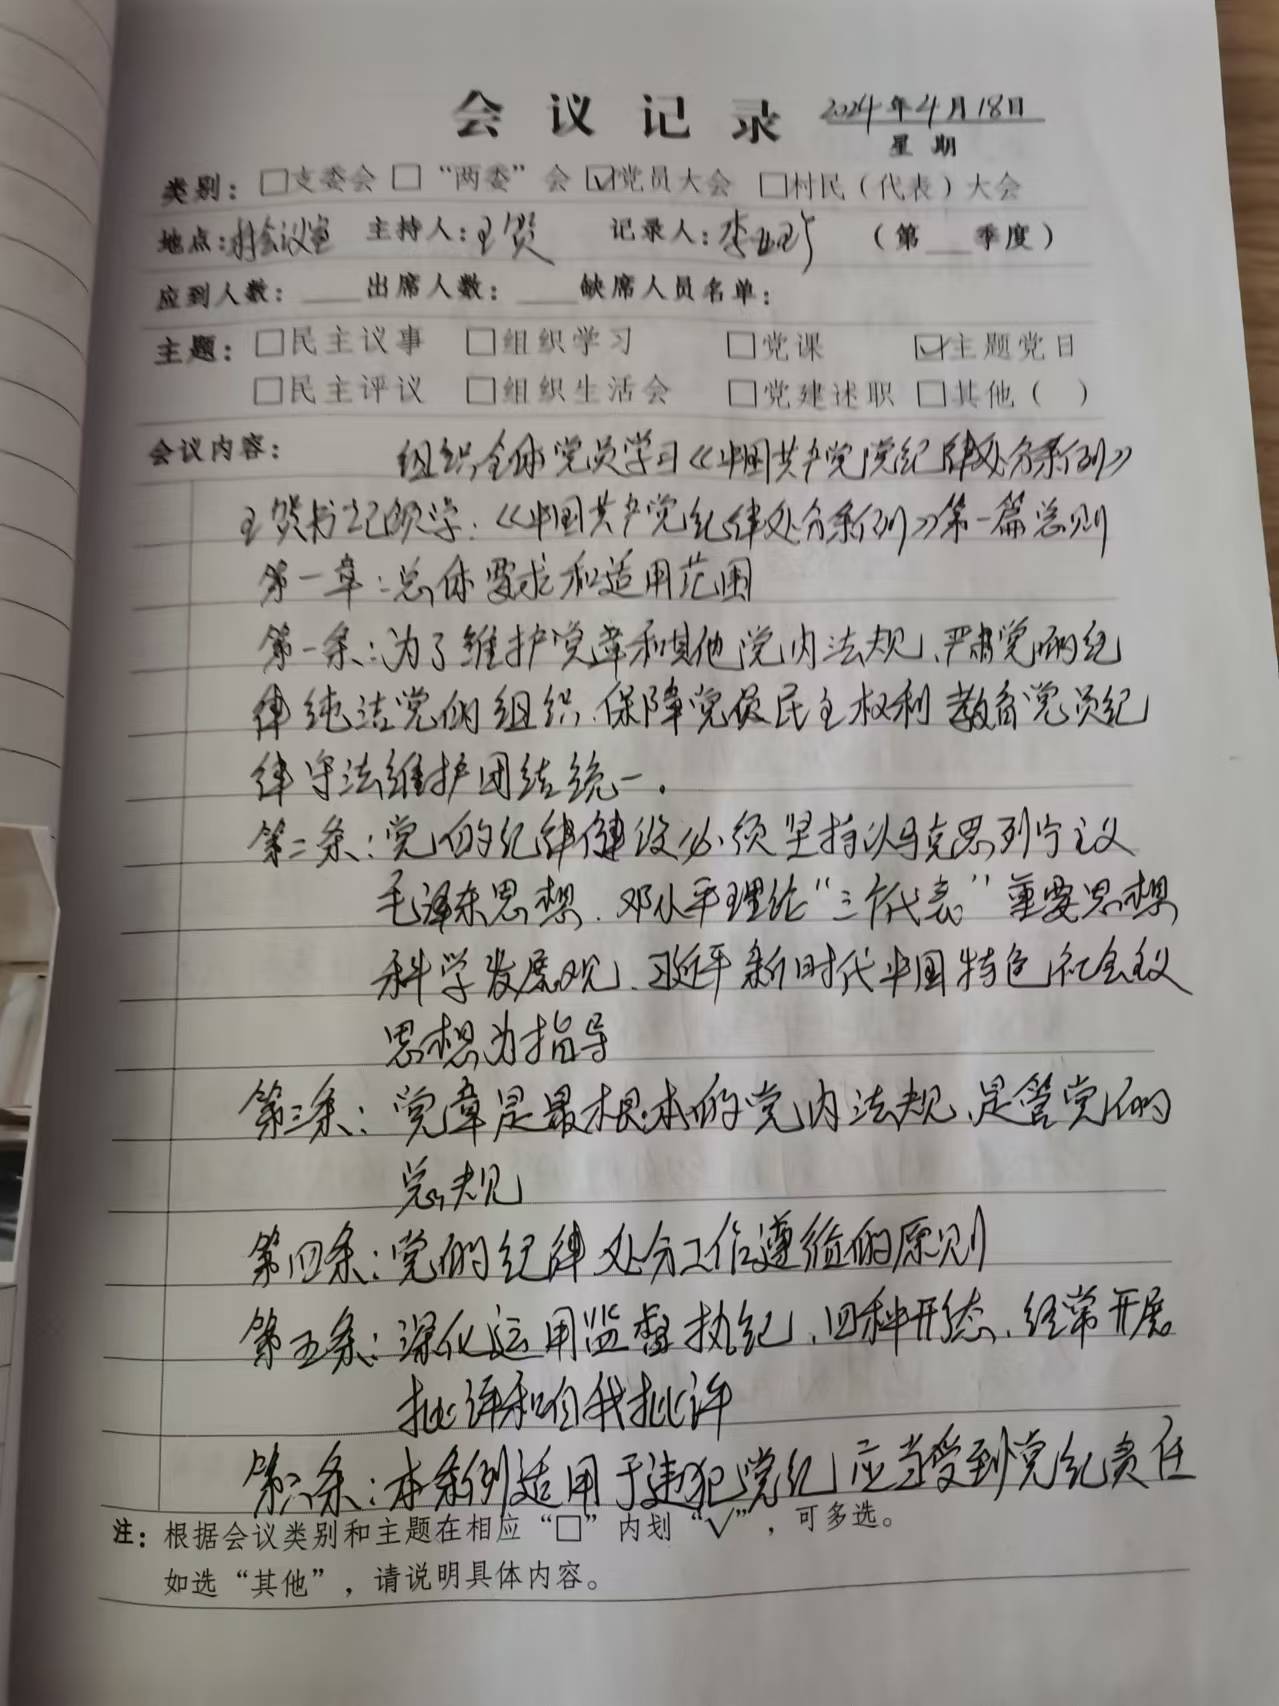 会议记录 2024年4月18日
星期
类别：□支委会 □“两委”会 ☑党员大会 □村民（代表）大会
地点：村会议室 主持人：王贺 记录人：李 （第 季度）
应到人数： 出席人数： 缺席人员名单：
主题：□民主议事 □组织学习 □党课 ☑主题党日
□民主评议 □组织生活会 □党建述职 □其他（ ）
会议内容： 组织全体党员学习《中国共产党党纪律处分条例》
王贺书记领学：《中国共产党纪律处分条例》第一篇总则
第一章：总体要求和适用范围
第一条：为了维护党章和其他党内法规、严肃党的纪
律纯洁党的组织、保障党员民主权利教育党员纪
律守法维护团结统一。
第二条：党的纪律建设必须坚持以马克思列宁主义
毛泽东思想、邓小平理论“三个代表”重要思想
科学发展观、习近平新时代中国特色社会主义
思想为指导
第三条：党章是最根本的党内法规、是管党的
总规
第四条：党的纪律处分工作遵循的原则
第五条：深化运用监督执纪、四种形态、经常开展
批评和自我批评
第六条：本条例适用于违犯党纪应当受到党纪责任
注：根据会议类别和主题在相应“□”内划“√”，可多选。
如选“其他”，请说明具体内容。